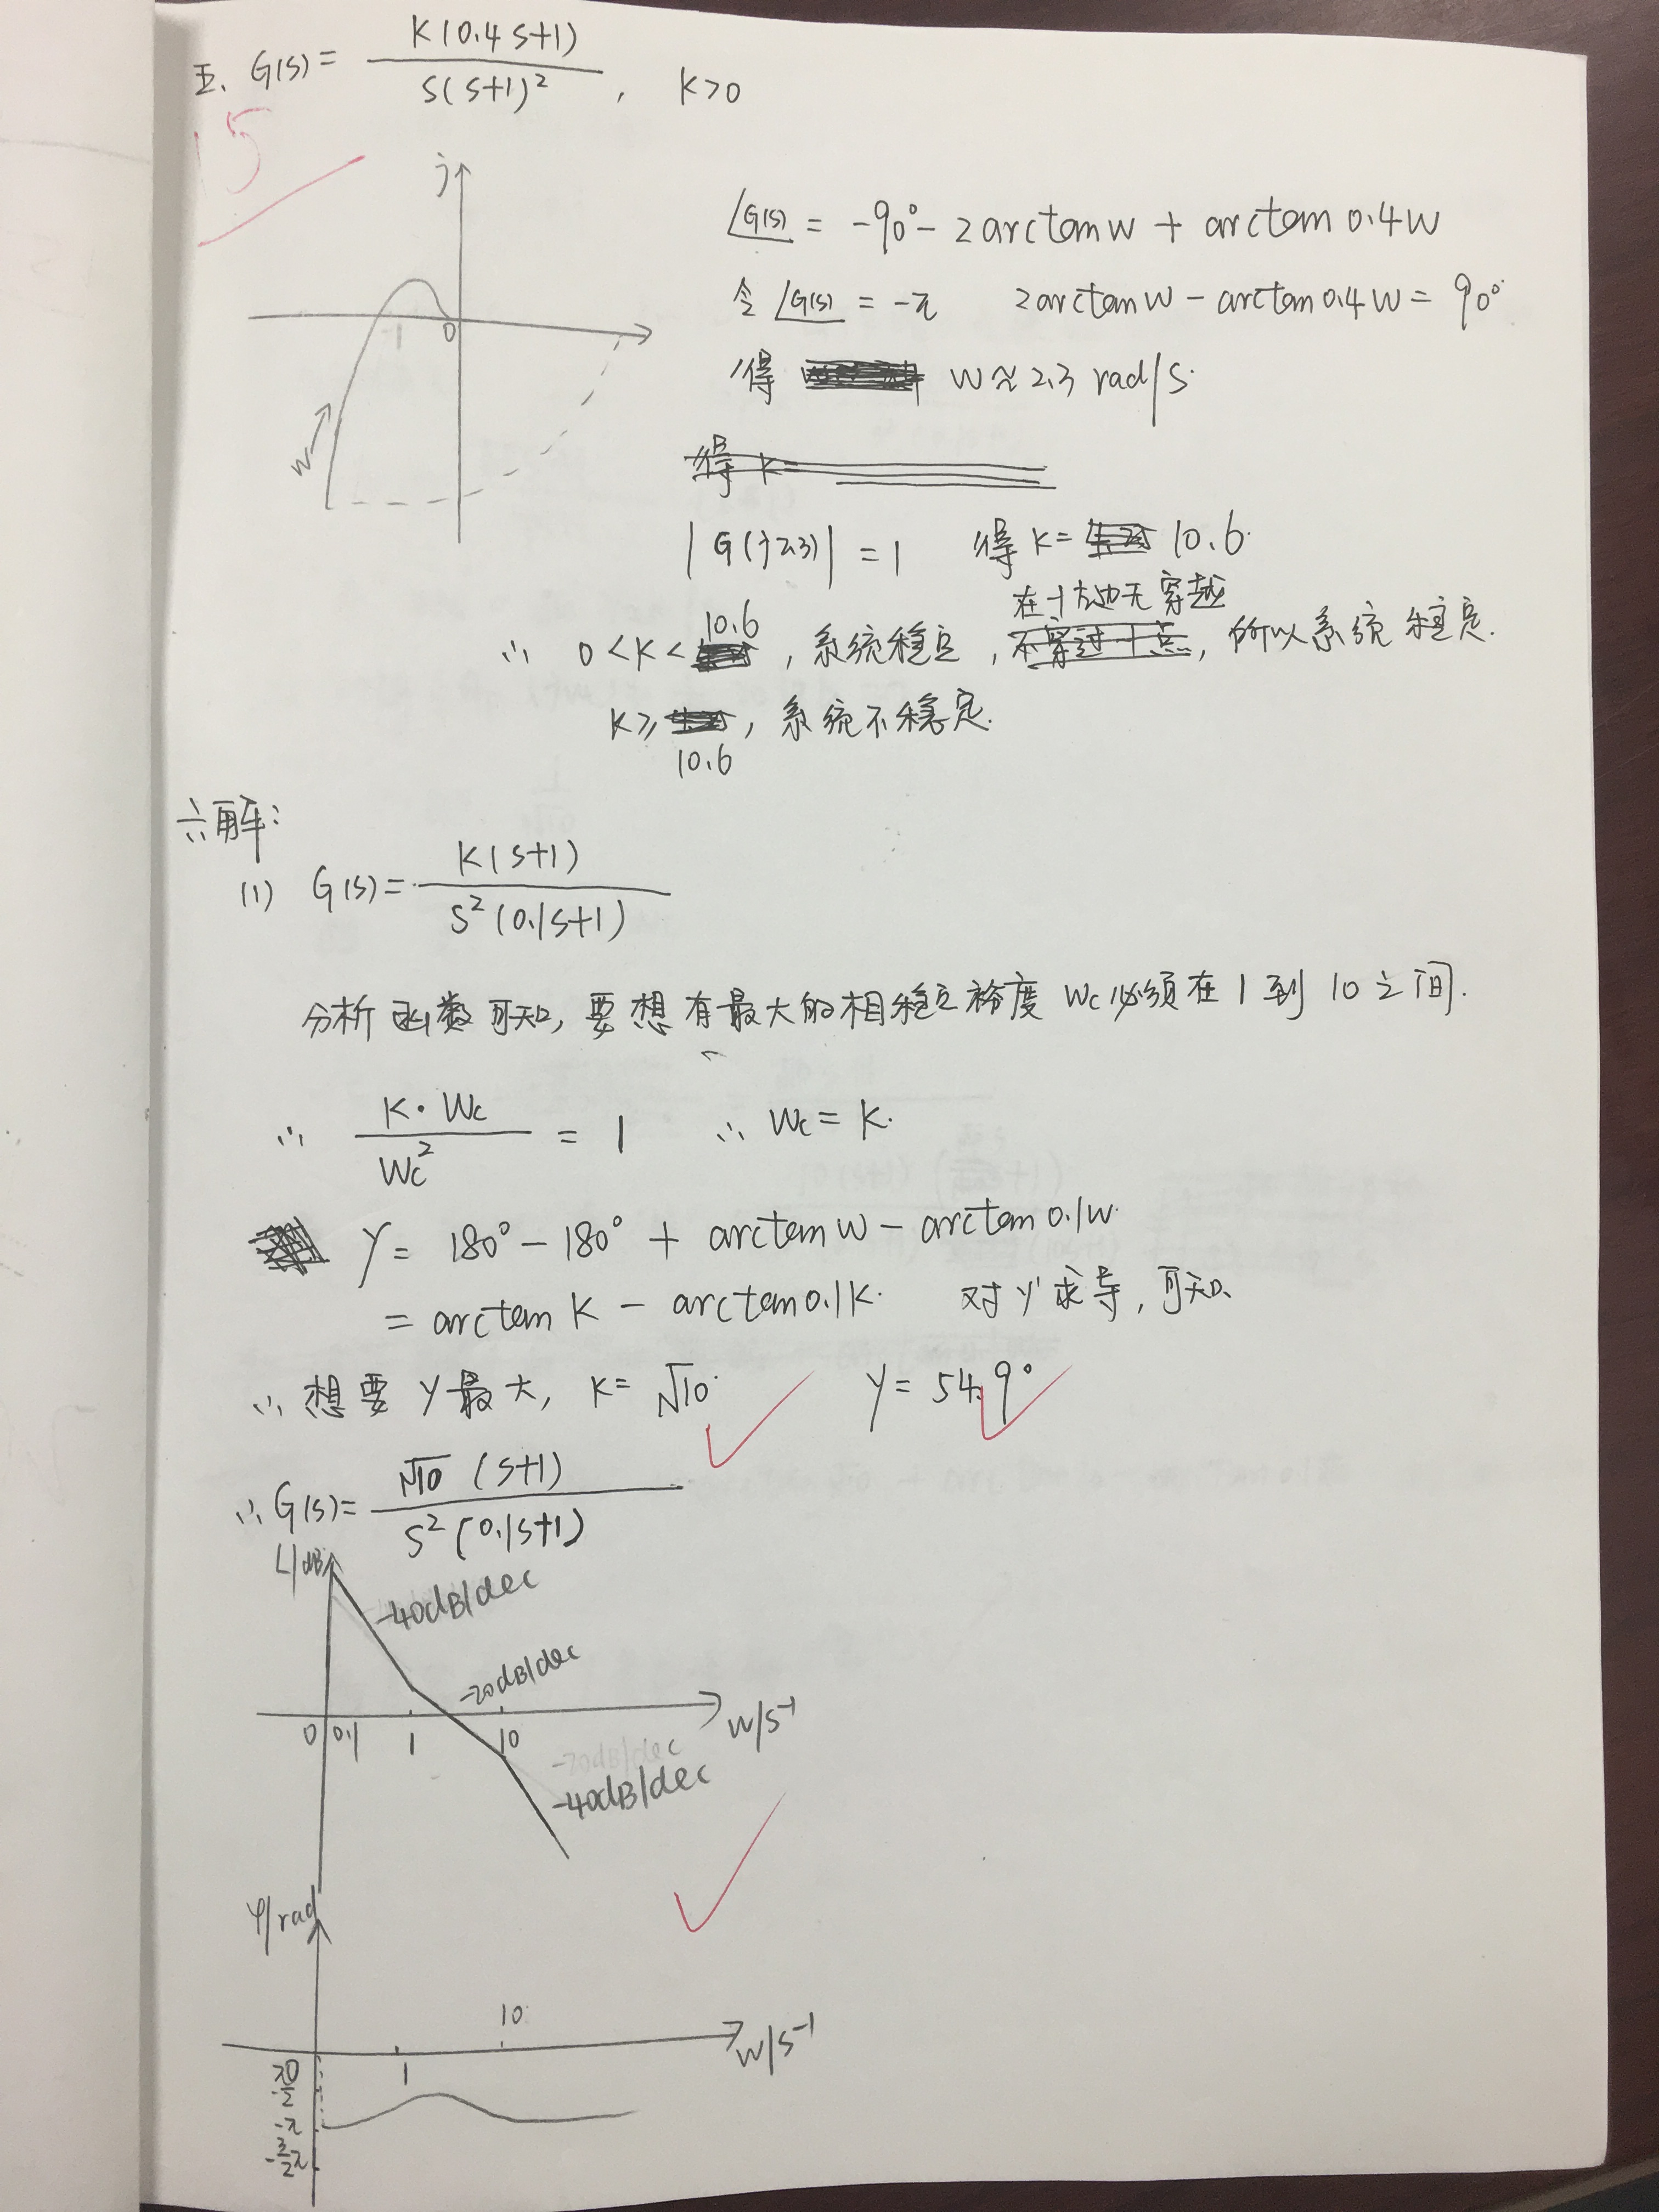 五、G(s)= K(0.4s+1) / s(s+1)² , K>0
15
j
∠G(s) = -90°- 2arctanw + arctan0.4w
令∠G(s) = -π 2arctanw - arctan0.4w = 90°
-1 0
得 w≈2.3 rad/s.
得 K=
w
|G(j2.3)| = 1 得K= 10.6.
在-1左边无穿越
∴ 0<K< 10.6 , 系统稳定, 不穿过-1点, 所以系统稳定.
K≥ 10.6 , 系统不稳定.
六解:
(1) G(s)= K(s+1) / s²(0.1s+1)
分析函数可知, 要想有最大的相稳定裕度 wc必须在1到10之间.
∴ K·wc / wc² = 1 ∴ wc = K.
γ = 180°-180° + arctanw - arctan0.1w.
= arctanK - arctan0.1K. 对γ求导, 可知、
∴ 想要γ最大, K= √10. γ= 54.9°
∴ G(s)= √10 (s+1) / s²(0.1s+1)
L/dB
-40dB/dec
-20dB/dec
0 0.1 1 10 w/s⁻¹
-20dB/dec
-40dB/dec
φ/rad
10
1 w/s⁻¹
-π/2
-π
-3/2π